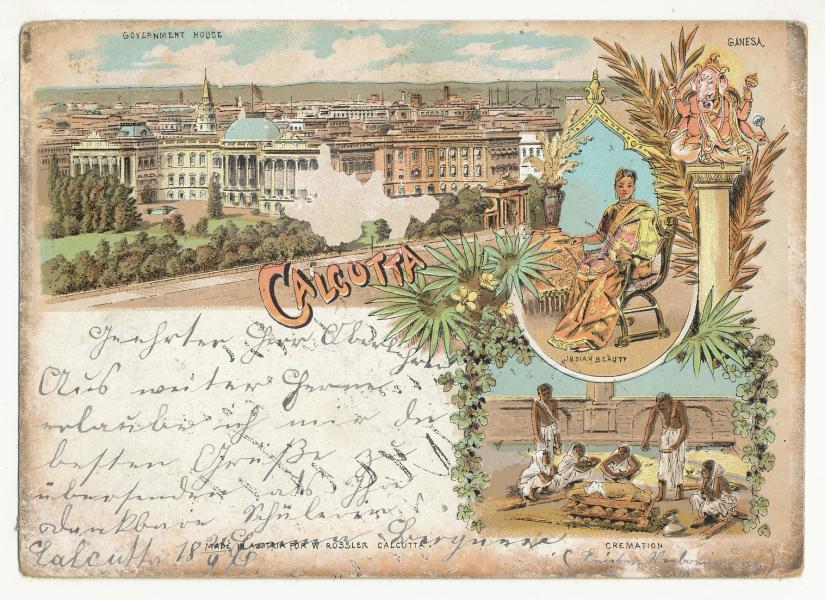 GOVERNMENT HOUSE
GANESA
CALCUTTA
INDIAN BEAUTY
Geehrter Herr Oberlehrer
Aus weiter Ferne
erlaube ich mir die
besten Grüße zu
übersenden als Ihre
dankbare Schülerin
Calcutta 18
MADE IN AUSTRIA FOR W. RÖSSLER CALCUTTA.
CREMATION